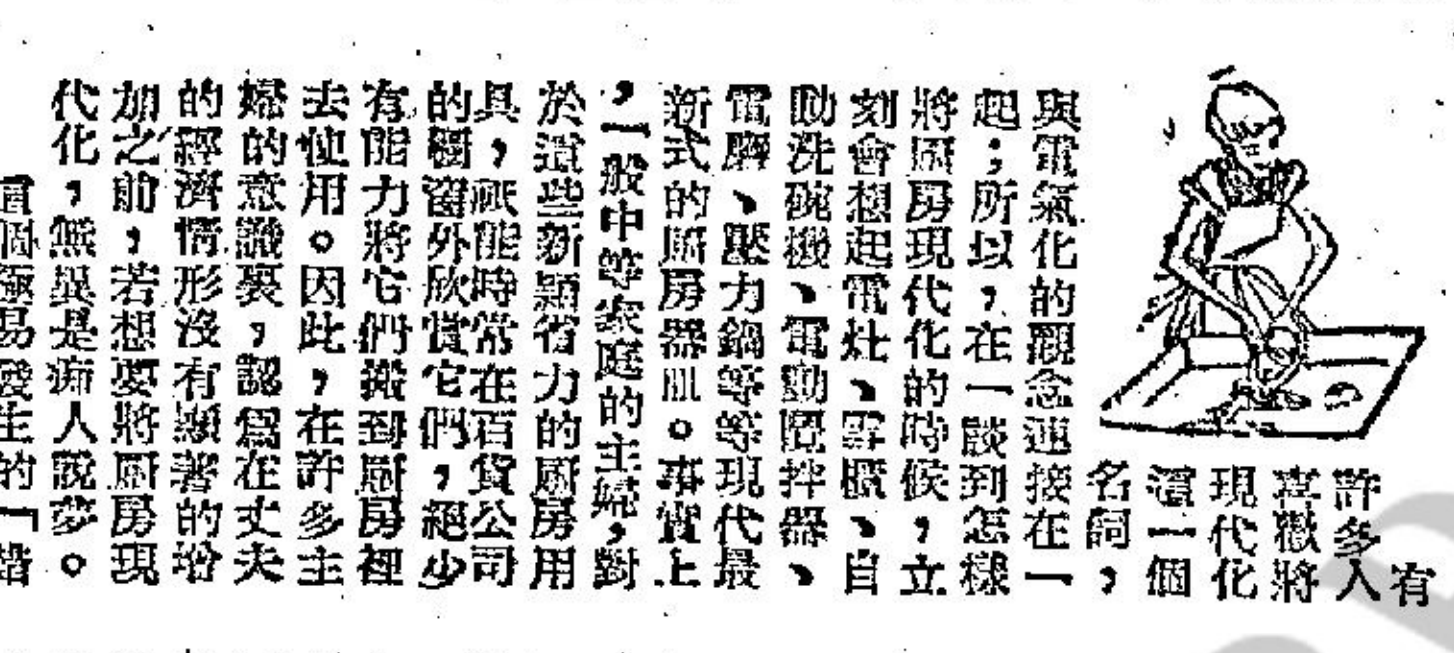 有
許多人
喜歡將
現代化
這一個
名詞，
與電氣化的觀念連接在一
起；所以，在一談到怎樣
將厨房現代化的時候，立
刻會想起電灶、電櫃、自
動洗碗機、電動攪拌器、
電磨、壓力鍋等等現代最
新式的厨房器皿。事實上
，一般中等家庭的主婦，對
於這些新穎省力的厨房用
具，祇能時常在百貨公司
的櫥窗外欣賞它們，絕少
有能力將它們搬到厨房裡
去使用。因此，在許多主
婦的意識裏，認爲在丈夫
的經濟情形沒有顯著的增
加之前，若想要將厨房現
代化，無異是痴人說夢。
這個極易發生的「錯